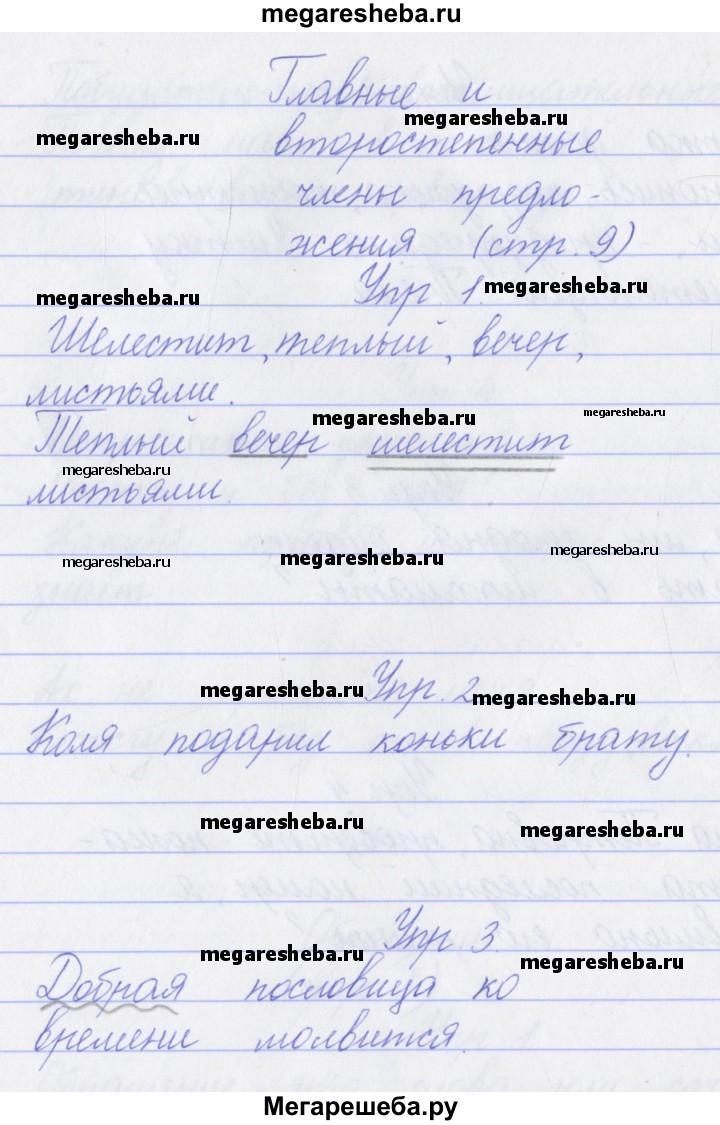 megaresheba.ru
Главные и
megaresheba.ru
megaresheba.ru
второстепенные
члены предло-
жения (стр. 9)
megaresheba.ru
Упр 1.
megaresheba.ru
Шелестит, теплый, вечер,
листьями.
megaresheba.ru
megaresheba.ru
Теплый вечер шелестит
megaresheba.ru
листьями.
megaresheba.ru
megaresheba.ru
megaresheba.ru
megaresheba.ru
Упр. 2
megaresheba.ru
Коля подарил коньки брату.
megaresheba.ru
megaresheba.ru
Упр. 3.
megaresheba.ru
megaresheba.ru
Добрая пословица ко
времени молвится.
Мегарешеба.ру